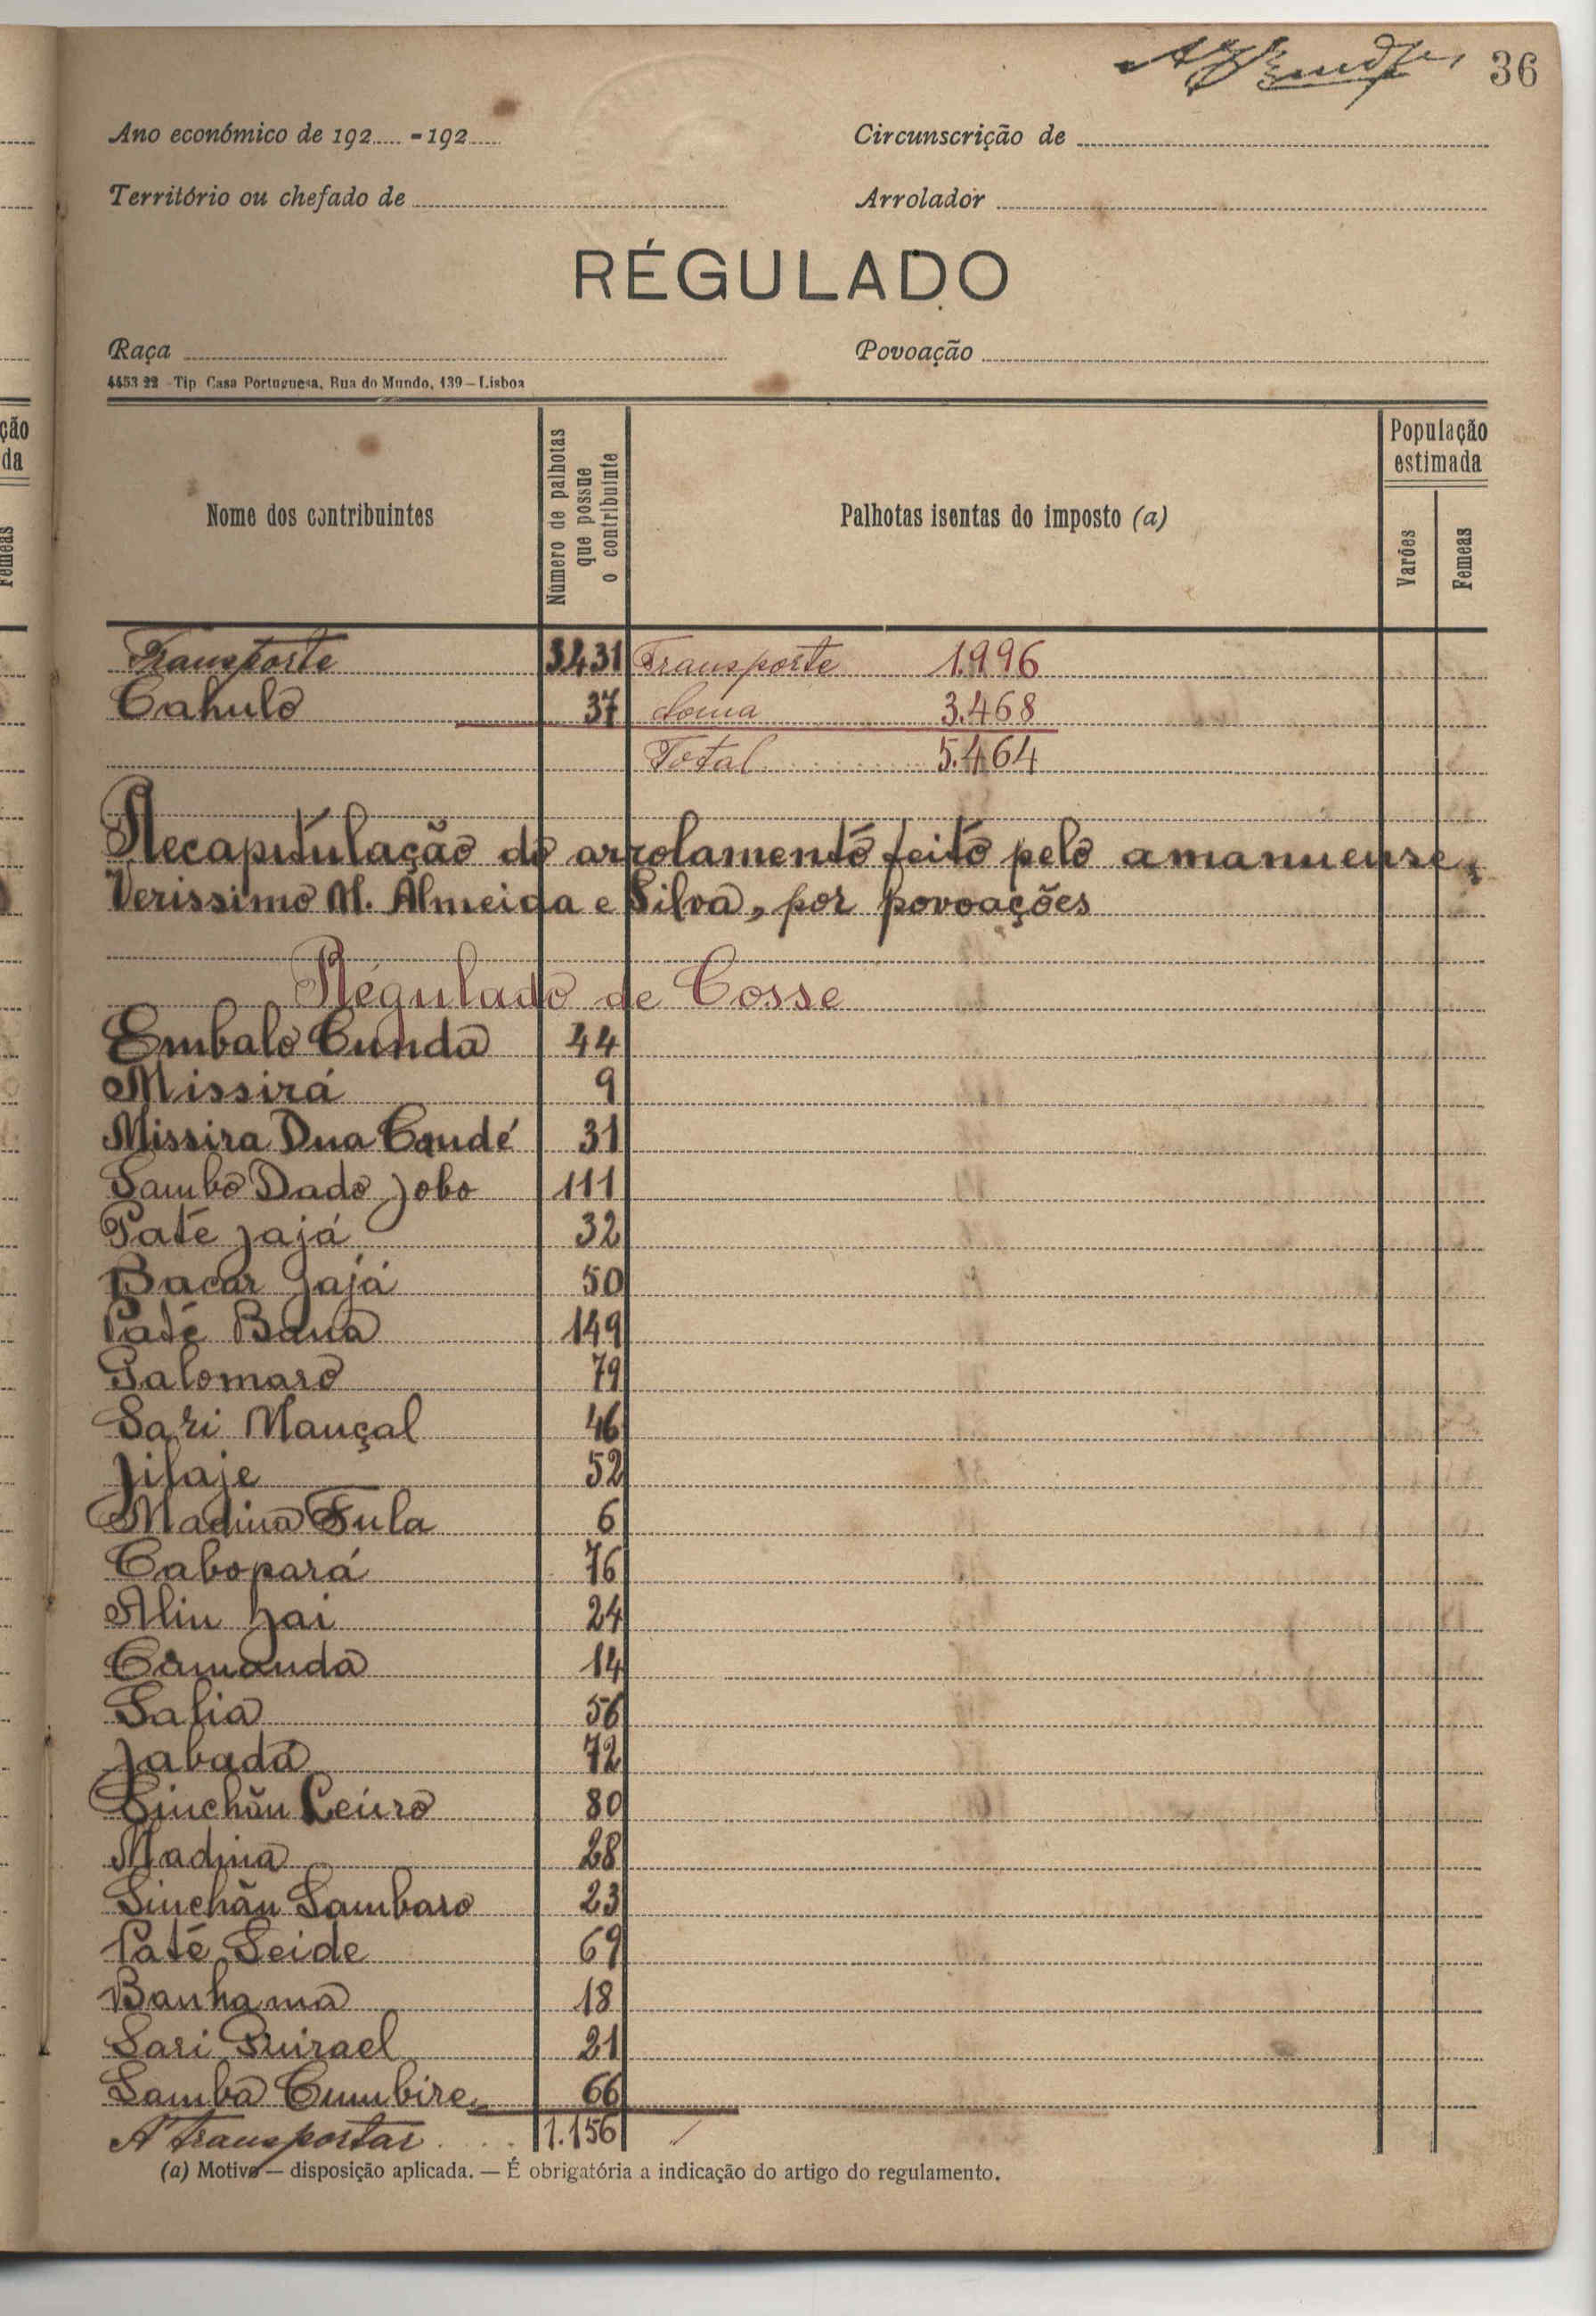 36
Ano económico de 192..... - 192.....
Circunscrição de
Território ou chefado de
Arrolador
RÉGULADO
Raça
Povoação
4453 22 - Tip. Casa Portuguesa, Rua do Mundo, 139 – Lisboa
Nome dos contribuintes
Número de palhotas que possue o contribuinte
Palhotas isentas do imposto (a)
População estimada
Varões
Femeas
Transporte 3431 Transporte 1.996
Cahulo 37 Soma 3.468
Total 5.464
Recapitulação do arrolamento feito pelo amanuense,
Verissimo M. Almeida e Silva, por povoações
Régulado de Cosse
Embalo Cunda 44
Missirá 9
Missira Dua Candé 31
Sambo Dado Jobo 111
Paté Jajá 32
Bacar Jajá 50
Paté Bana 149
Galomaro 79
Sari Mançal 46
Jilaje 52
Madina Fula 6
Cabopará 76
Aliu Jai 24
Camanda 14
Salia 56
Jabadá 72
Sinchãn Ceiuro 80
Madina 28
Sinchãn Sambaro 23
Paté Seide 69
Banhama 18
Sari Guirael 21
Samba Cumbire 66
A transportar 1.156
(a) Motivo — disposição aplicada. — É obrigatória a indicação do artigo do regulamento.
ção
da
Femeas